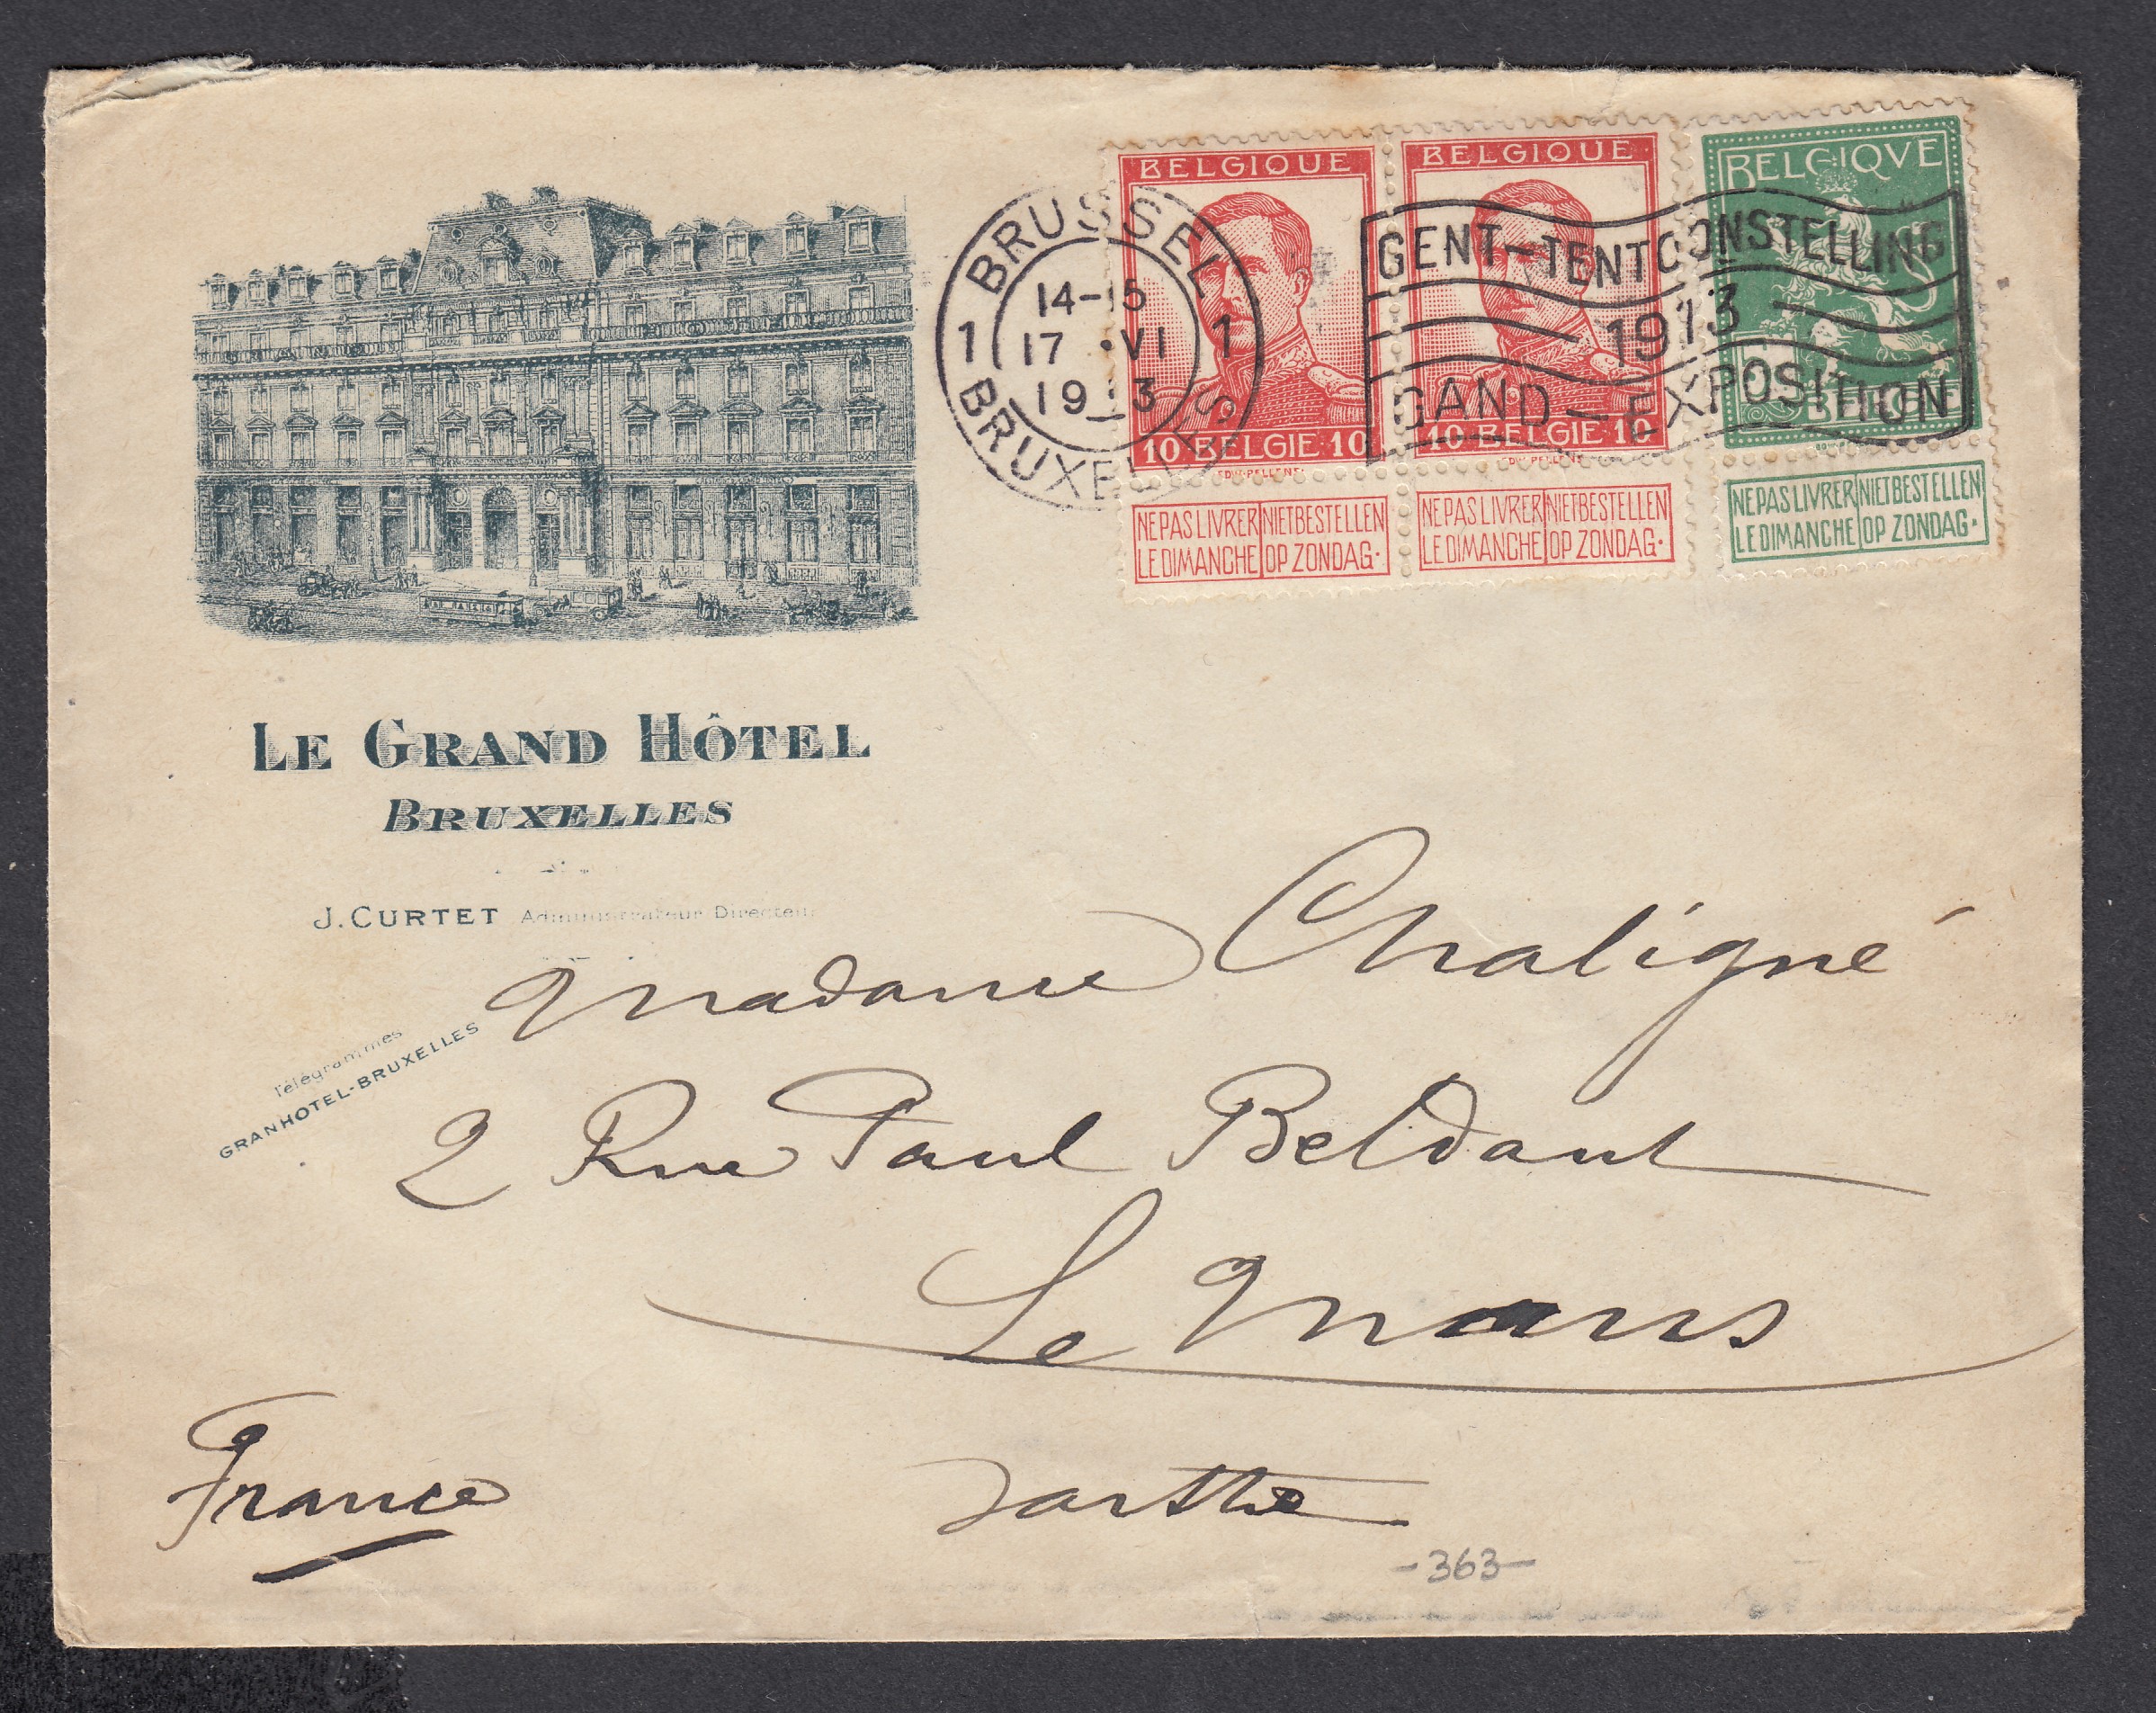 BELGIQUE
10 BELGIE 10
NE PAS LIVRER LE DIMANCHE
NIET BESTELLEN OP ZONDAG.
BELGIQUE
10 BELGIE 10
NE PAS LIVRER LE DIMANCHE
NIET BESTELLEN OP ZONDAG.
BELGIQVE
BELGIE
NE PAS LIVRER LE DIMANCHE
NIET BESTELLEN OP ZONDAG.
BRUSSEL
1 1
14-15
17 •VI
19 3
BRUXELLES
GENT-TENTOONSTELLING
1913
GAND-EXPOSITION
LE GRAND HÔTEL
BRUXELLES
J. CURTET Administrateur Directeur
Télégrammes
GRANHOTEL-BRUXELLES
Madame Chaligné
2 Rue Paul Beldant
Le Mans
France
Sarthe
-363-